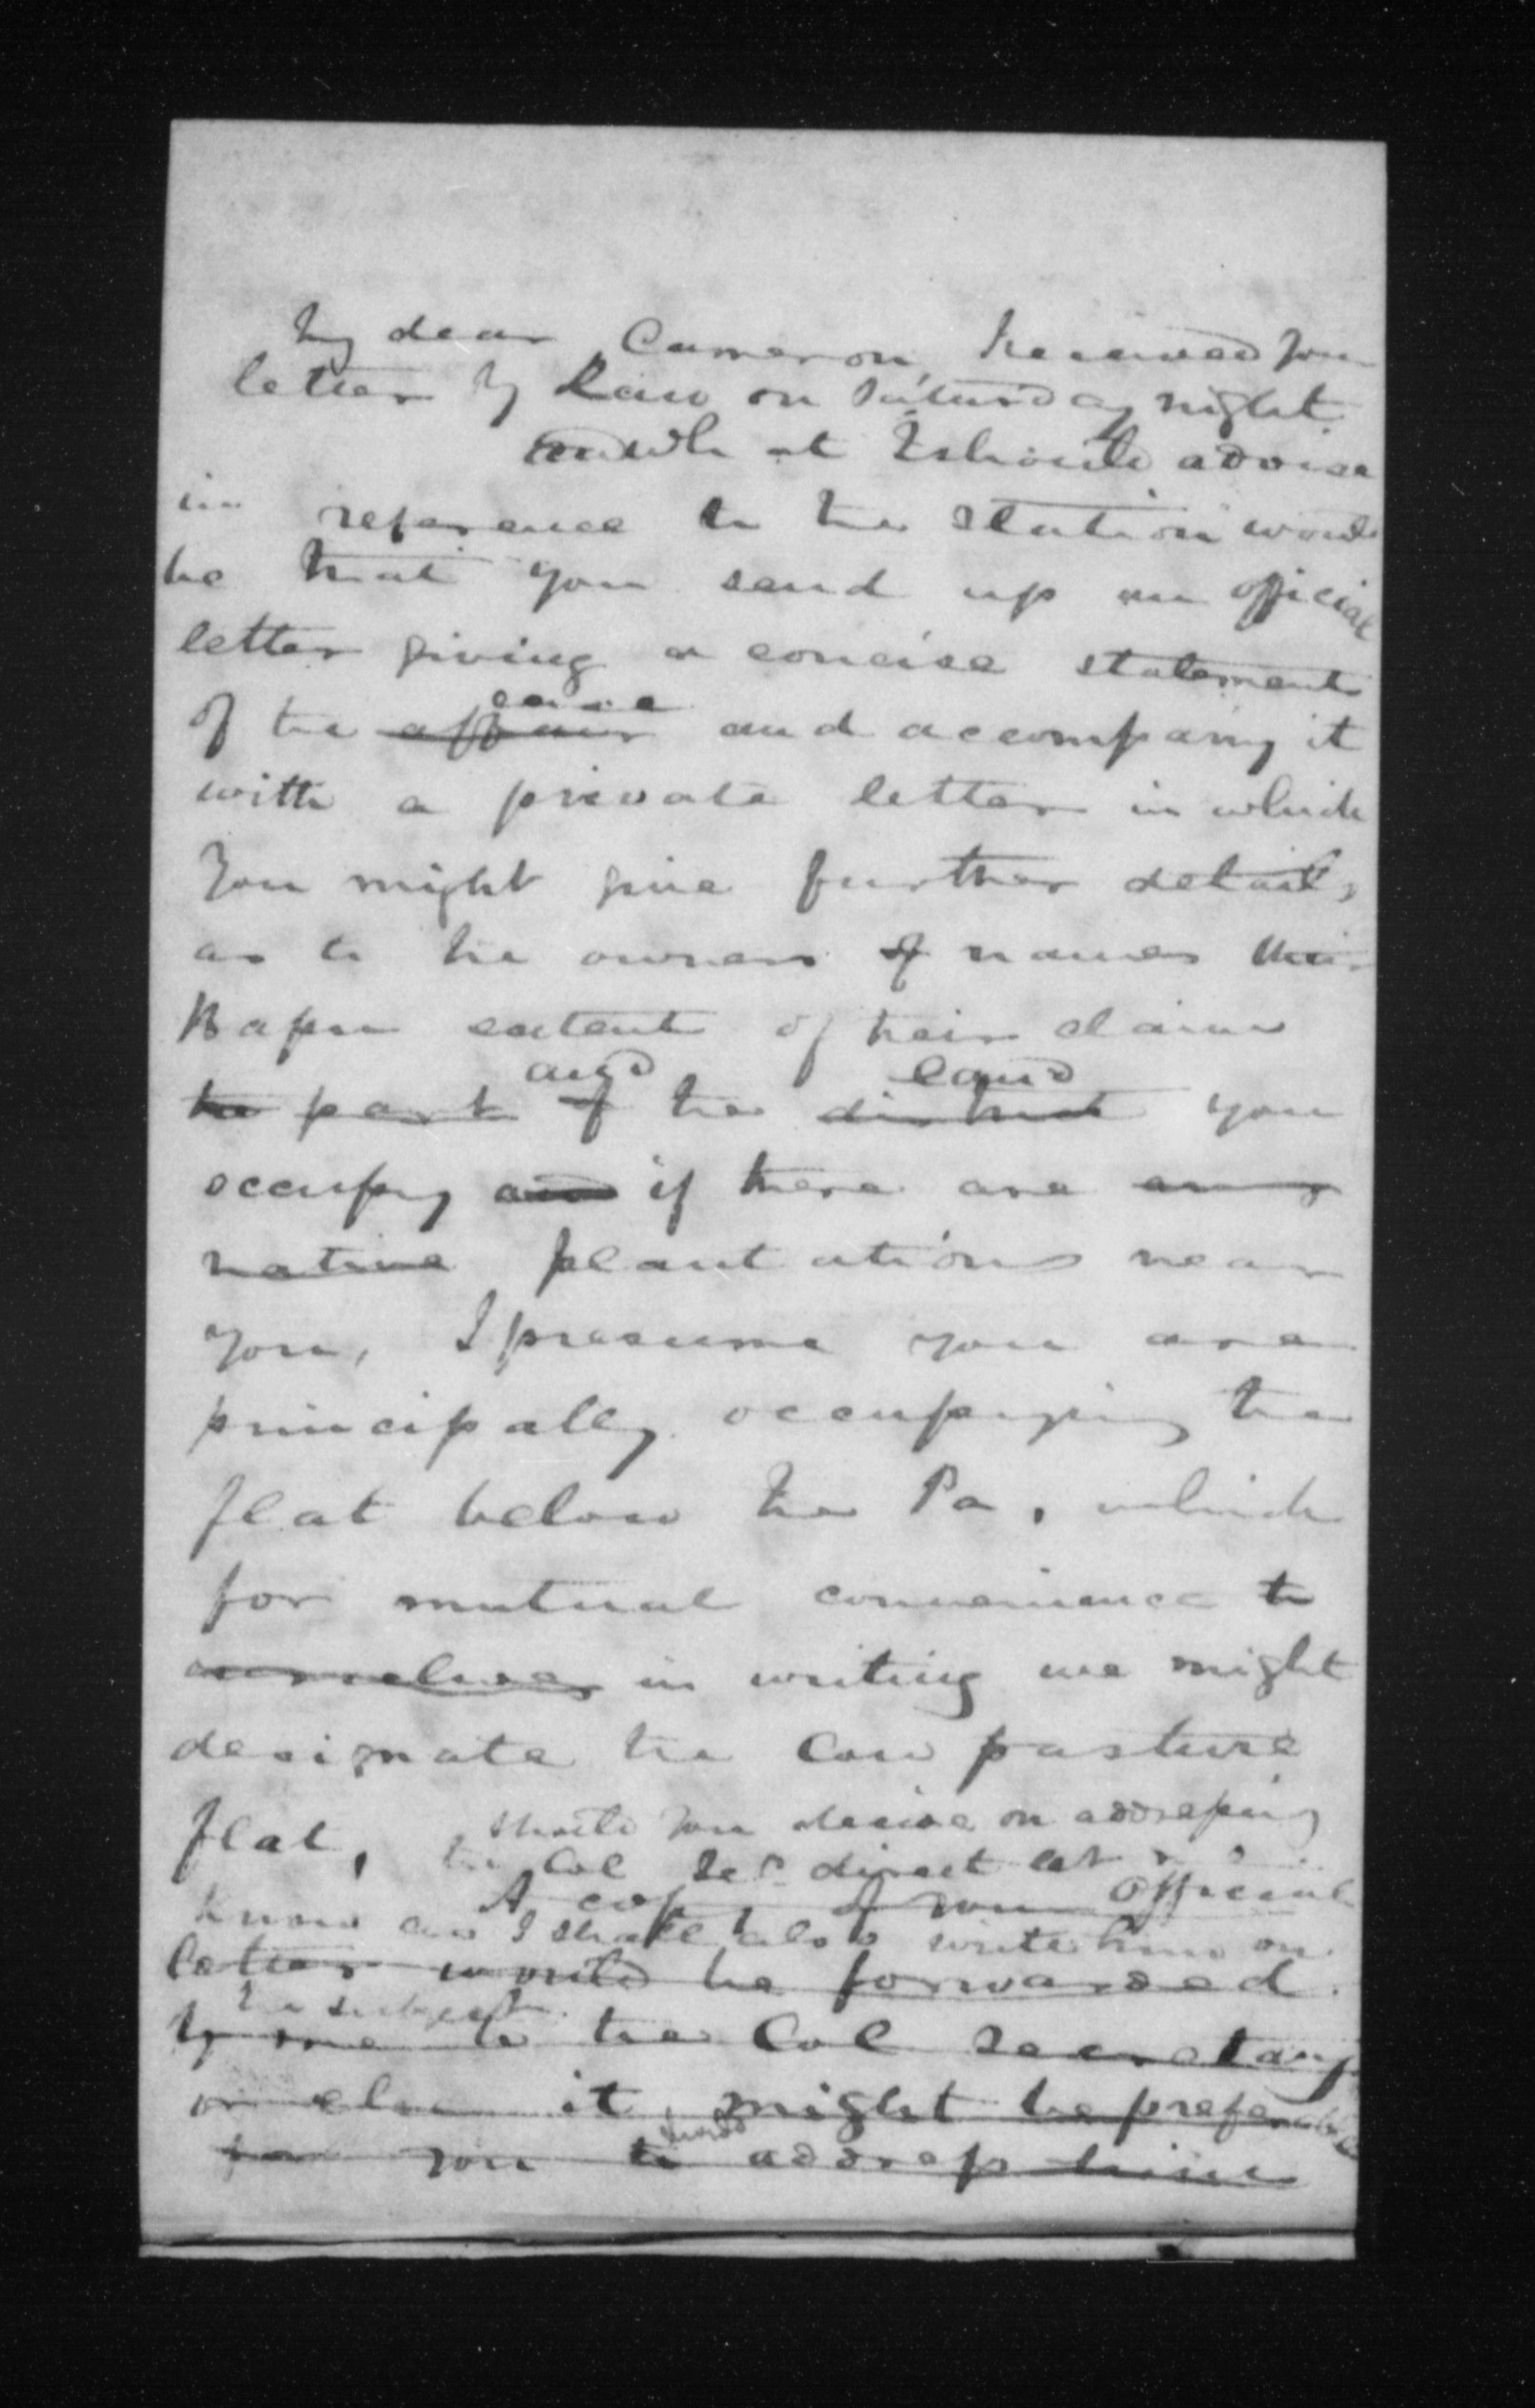 My dear Cameron, Received your
letter by Law on Saturday night
What I should advise
in reference to the Station would
be that you send up an official
letter giving a concise statement
of the affair case and accompany it
with a private letter in which
You might give further details
as to the owners of names their
Hapu extent of their claims
the part of and the district land you
occupy and if there are any
native plantations near
you, I presume you are
principally occupying the
flat below the Pa, which
for mutual convenience to
ourselves in writing we might
designate the Cow pasture
flat, should you decide on addressing
the Col Sec direct let
A copy of your Official
know as I shall also write him on
letter would be forwarded
the subject
by me to the Col Secretary
or else it might be preferable
for you to address him